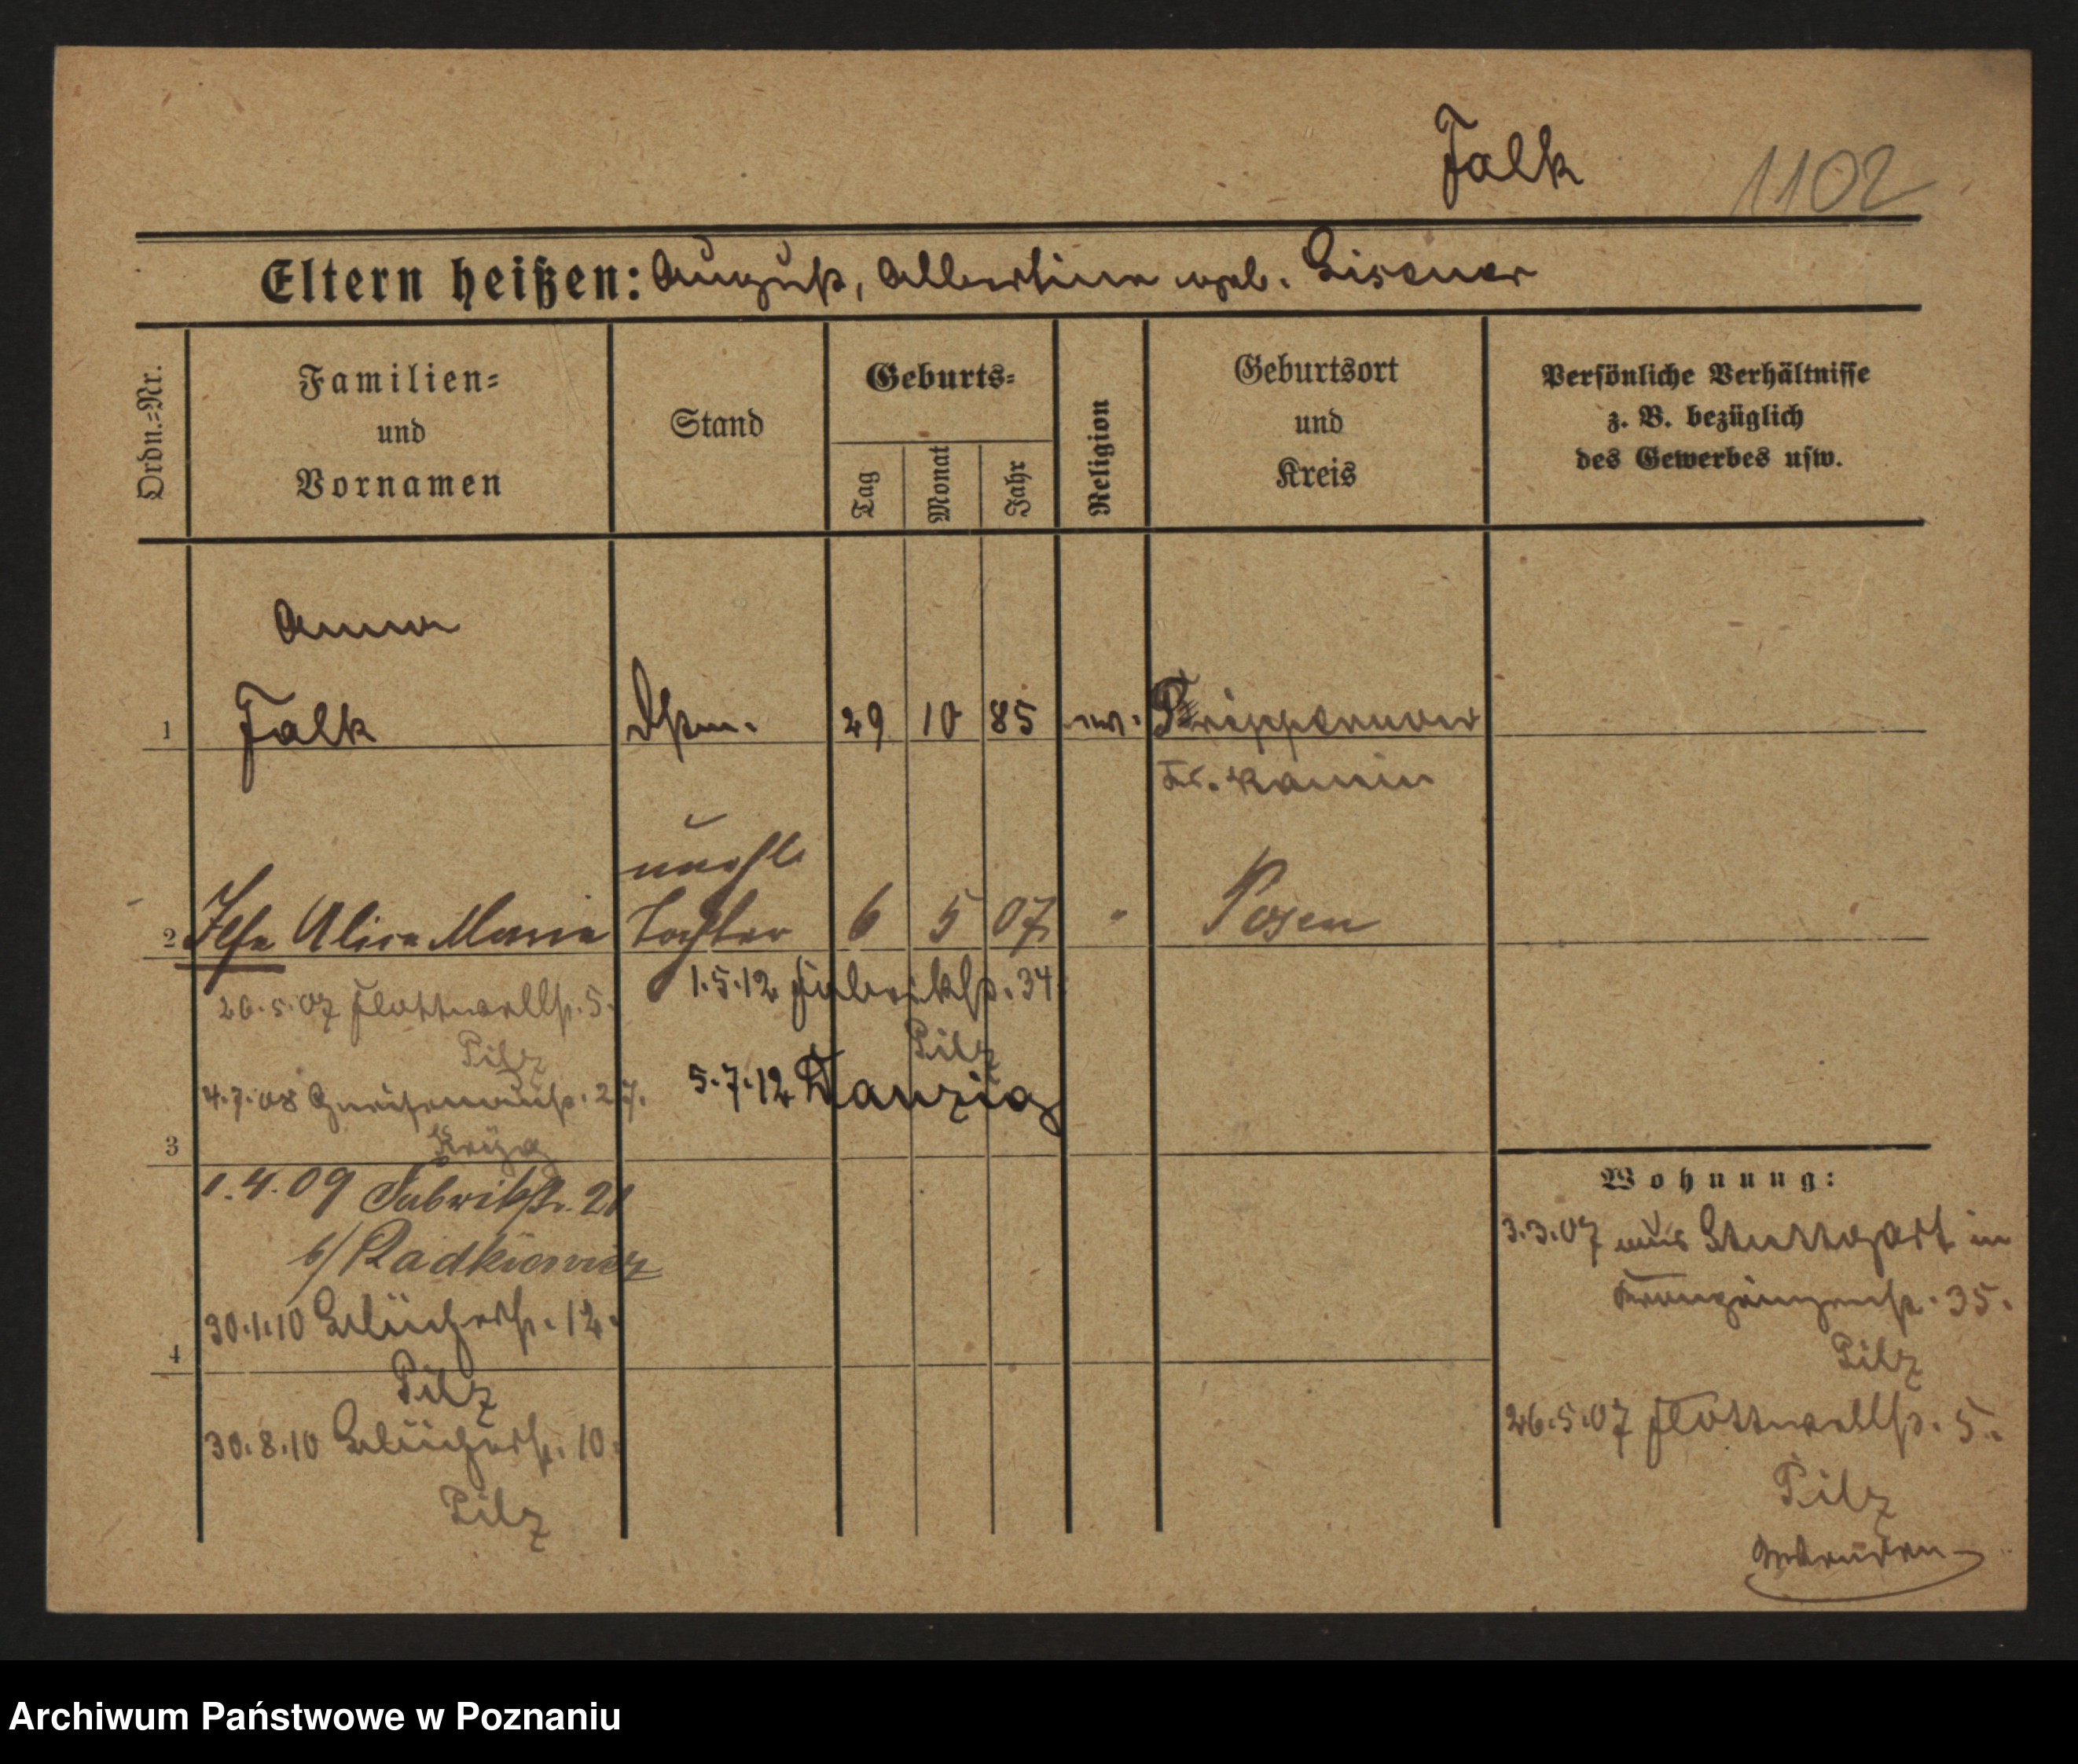 Falk 1102
Eltern heißen: August, Albertine geb. Eisener
Ordn.=Nr.
Familien=
und
Vornamen
Stand
Geburts=
Tag
Monat
Jahr
Religion
Geburtsort
und
Kreis
Persönliche Verhältnisse
z. B. bezüglich
des Gewerbes usw.
Anna
1 Falk 29 10 85 ev.
Kr. Kamin
unehl.
2 Ilse Alice Marie Tochter 6 5 07 " Posen
26.5.07 Flottwellstr. 5.
Pilz
4.7.08 Gneisenaustr. 27.
Krüg
3
1.4.09 Fabrikstr. 21
b/ Radkiewicz
30.1.10 Blücherstr. 12.
4
Pilz
30.8.10 Blücherstr. 10.
Pilz
1.5.12 Fabrikstr. 34.
Pilz
5.7.12 Danzig
Wohnung:
3.3.07 aus Stuttgart in
35.
Pilz
26.5.07 Flottwellstr. 5.
Pilz
Wenden
Archiwum Państwowe w Poznaniu